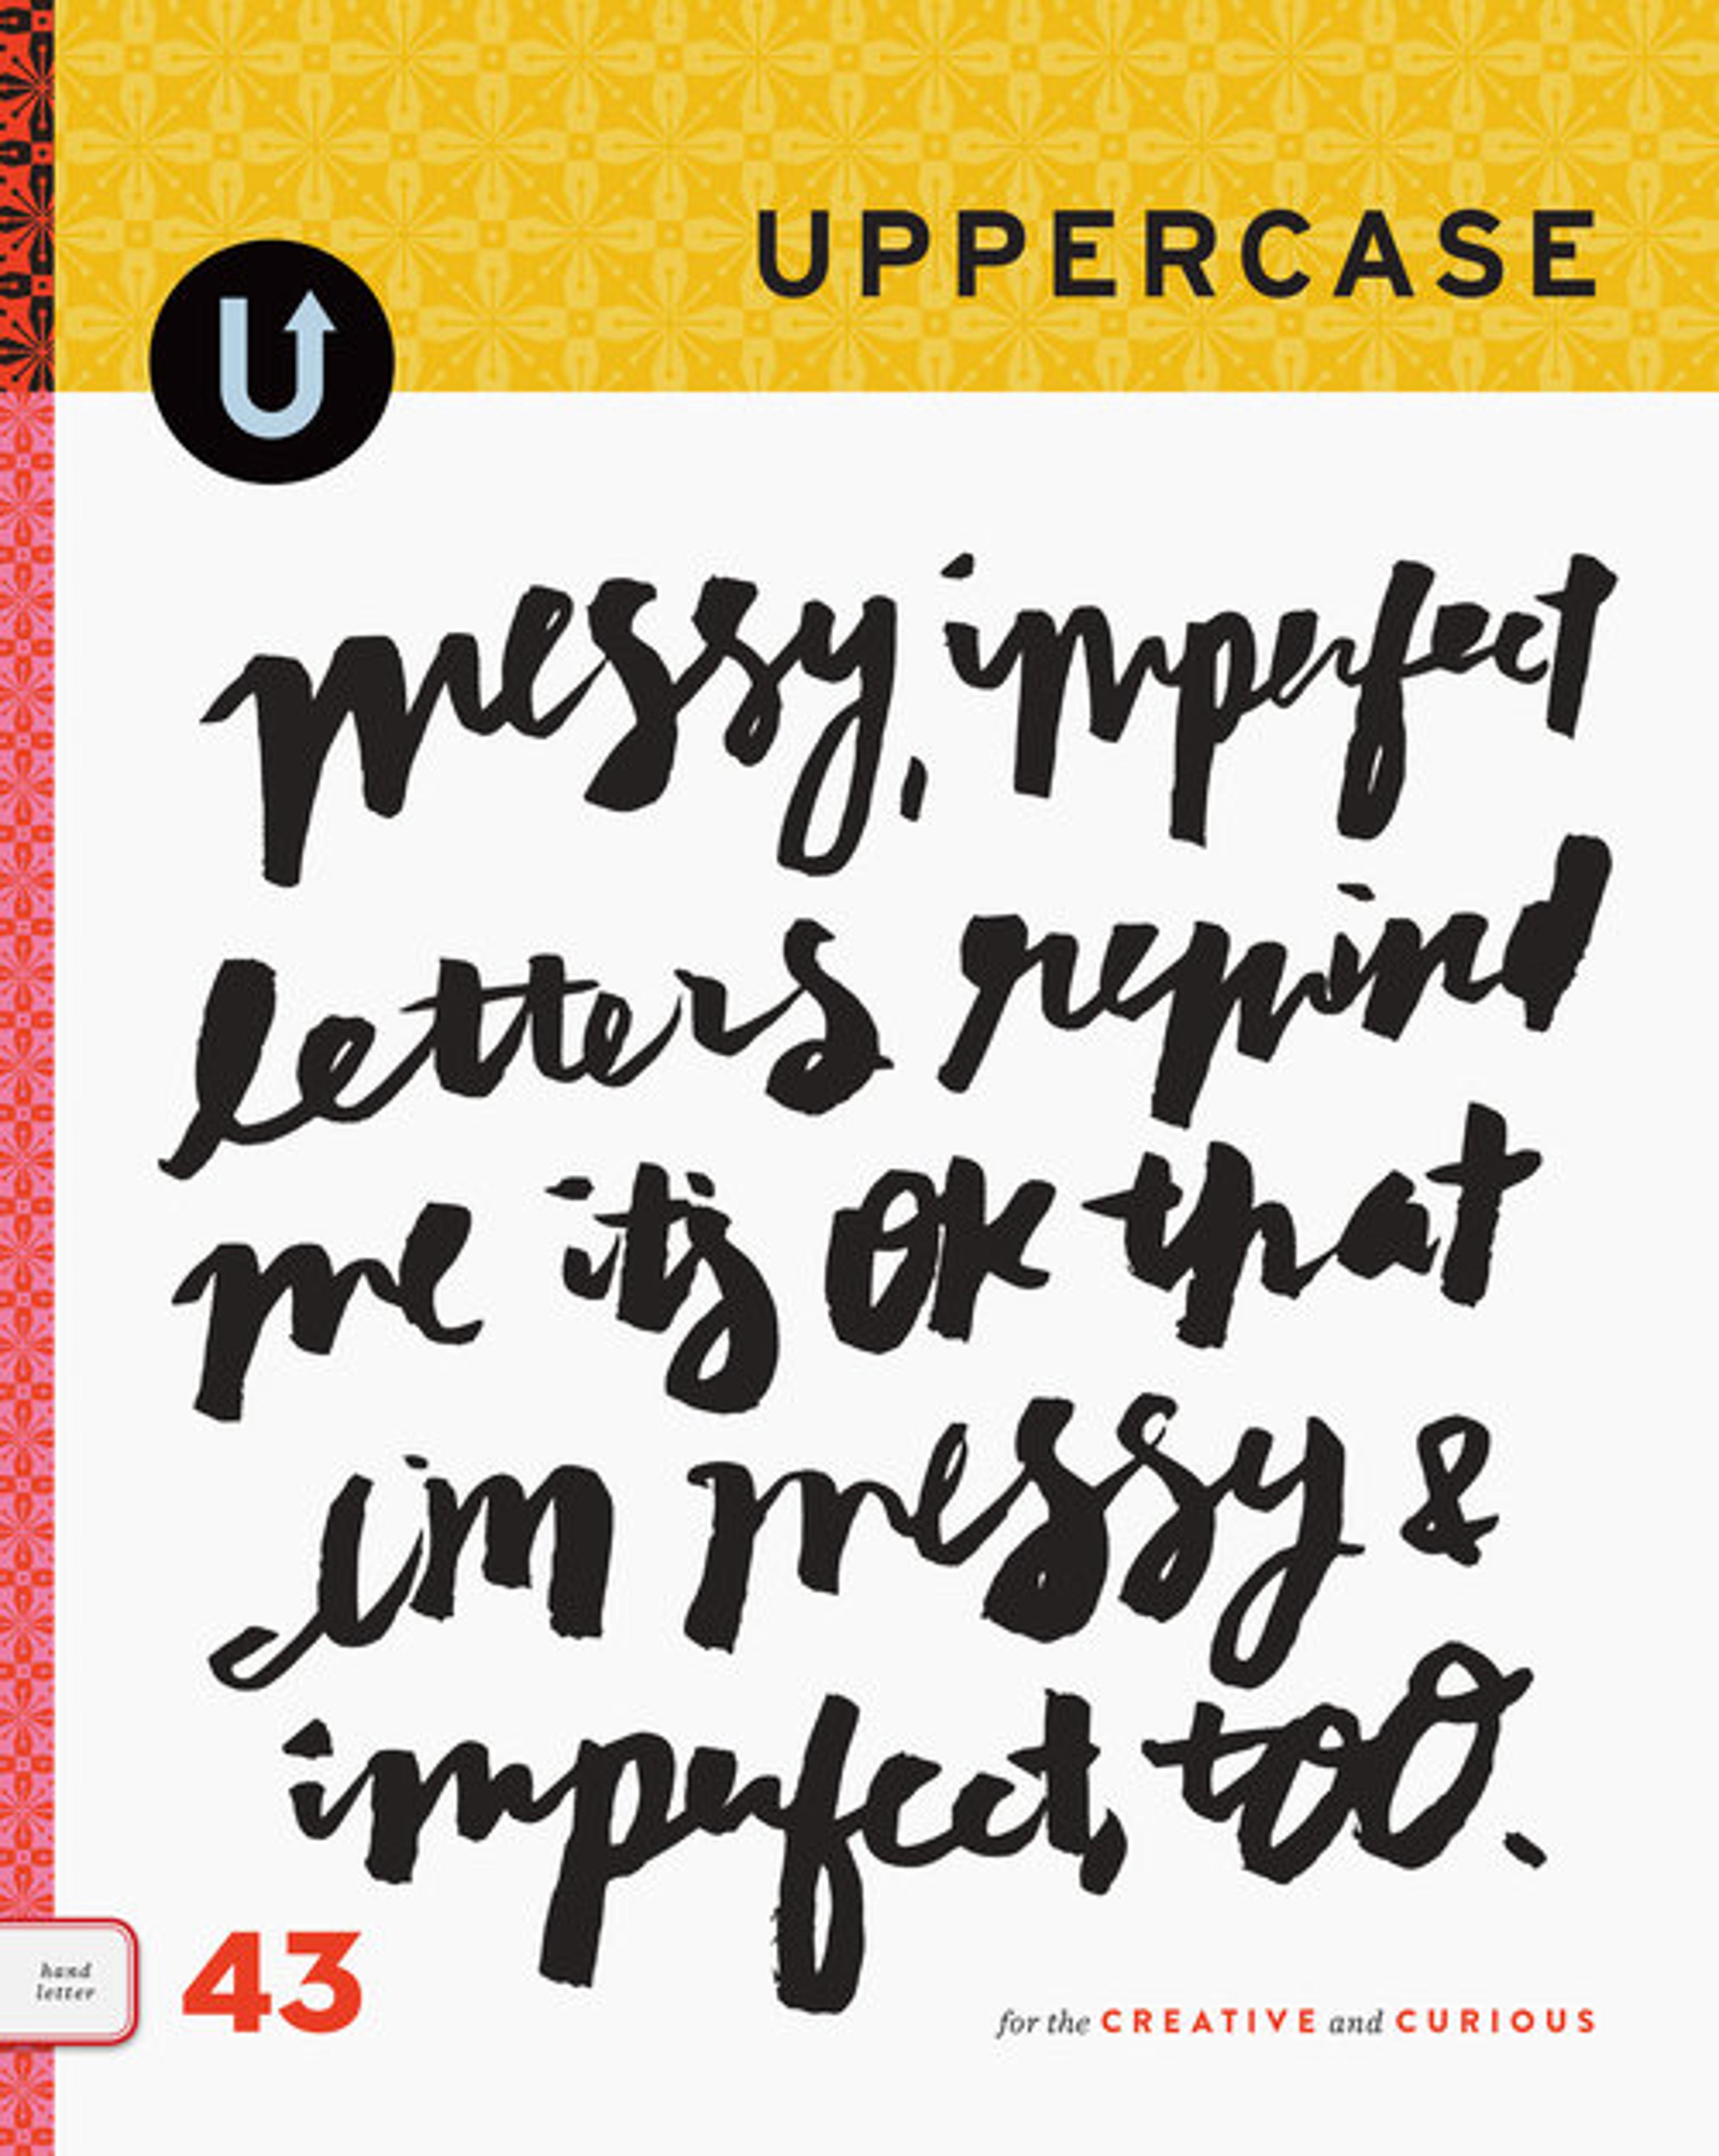 UPPERCASE
U
messy, imperfect
letters remind
me it's OK that
i'm messy &
imperfect, too.
hand
letter
43
for the CREATIVE and CURIOUS